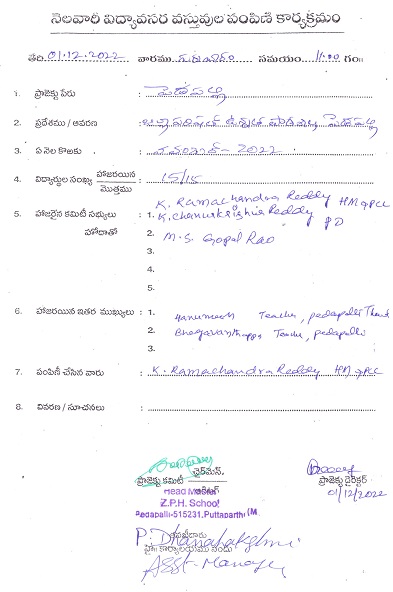 నెలవారీ విద్యావసర వస్తువుల పంపిణీ కార్యక్రమం
తేది. 01.12.2022 వారము. గురువారం సమయం. 11.00 గం॥
1. ప్రాజెక్టు పేరు : పెడపల్లి
2. ప్రదేశము / ఆవరణ : పెడపల్లి
3. ఏ నెల కొఱకు : నవంబర్ - 2022
4. విద్యార్థుల సంఖ్య హాజరయిన / మొత్తము : 15/15
5. హాజరైన కమిటీ సభ్యులు హోదాతో : 1. K. Ramachandra Reddy HM & PCC
K. Reddy PD
2. M.S. Gopal Rao
3.
4.
5.
6. హాజరయిన ఇతర ముఖ్యులు : 1. Hanumanth Teacher, pedapalli
2. Teacher, pedapalli
3.
7. పంపిణీ చేసిన వారు : K. Ramachandra Reddy HM & PCC
8. వివరణ / సూచనలు :
ఛైర్‌మెన్,
ప్రాజెక్టు కమిటీ
ప్రాజెక్టు డైరెక్టర్
01/12/2022
Head Master
Z.P.H. School
Pedapalli-515231, Puttaparthi (M
P. Dhanalakshmi
Asst-Manager